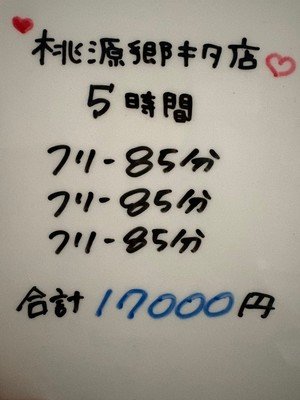 桃源郷キタ店
5時間
フリー85分
フリー85分
フリー85分
合計17000円